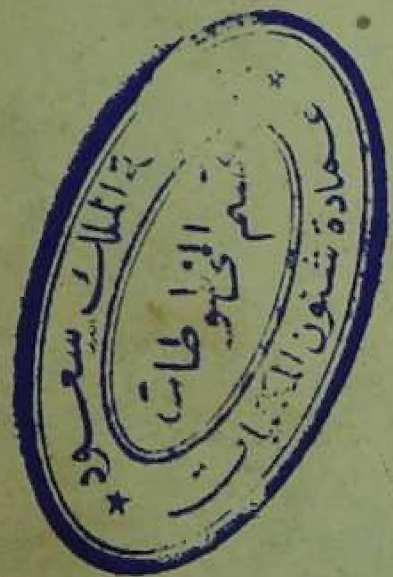 ة الملك سعود
عمادة شئون المكتبات
قسم
المخطوطات